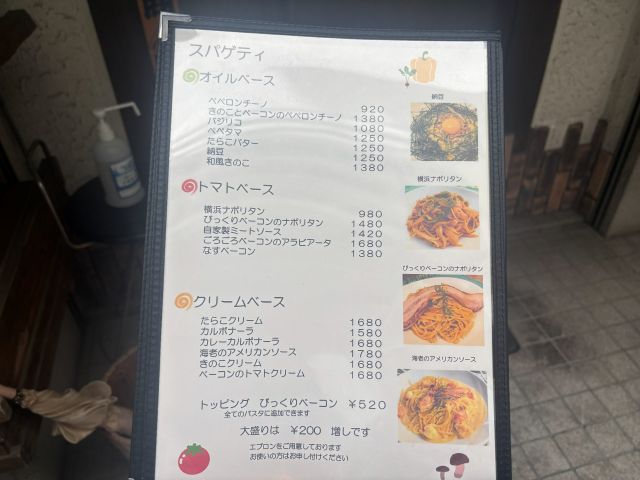 スパゲティ
オイルベース
ペペロンチーノ 920
きのことベーコンのペペロンチーノ 1380
バジリコ 1080
ペペタマ 1250
たらこバター 1250
納豆 1250
和風きのこ 1380
納豆
トマトベース
横浜ナポリタン 980
びっくりベーコンのナポリタン 1480
自家製ミートソース 1420
ごろごろベーコンのアラビアータ 1680
なすベーコン 1380
横浜ナポリタン
びっくりベーコンのナポリタン
クリームベース
たらこクリーム 1680
カルボナーラ 1580
カレーカルボナーラ 1680
海老のアメリカンソース 1780
きのこクリーム 1680
ベーコンのトマトクリーム 1680
海老のアメリカンソース
トッピング びっくりベーコン ¥520
全てのパスタに追加できます
大盛りは ¥200 増しです
エプロンをご用意しております
お使いの方はお申し付けください